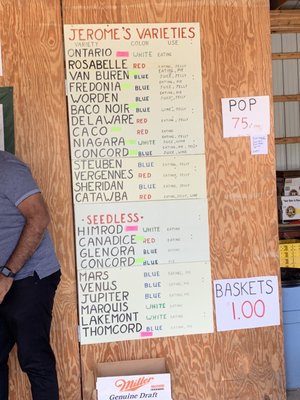 JEROME'S VARIETIES
VARIETY COLOR USE
ONTARIO WHITE EATING
ROSABELLE RED
VAN BUREN BLUE
FREDONIA BLUE
WORDEN BLUE
BACO NOIR BLUE
DELAWARE RED
CACO RED
NIAGARA WHITE
CONCORD BLUE
STEUBEN BLUE
VERGENNES RED
SHERIDAN BLUE
CATAWBA RED
SEEDLESS:
HIMROD WHITE EATING
CANADICE RED EATING
GLENORA BLUE EATING
CONCORD BLUE PIE
MARS BLUE EATING
VENUS BLUE EATING
JUPITER BLUE EATING
MARQUIS WHITE EATING
LAKEMONT WHITE EATING
THOMCORD BLUE
POP
75¢
BASKETS
1.00
Miller
Genuine Draft